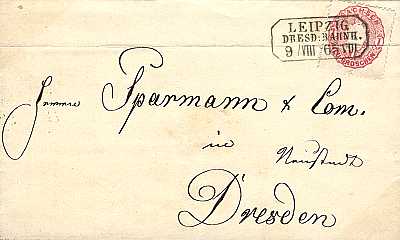 LEIPZIG
DRESD: BAHNH.
9 / VIII 6 VIII
SACHSEN
GROSCHEN
Sparmann & Com.
in
Neustadt
Dresden